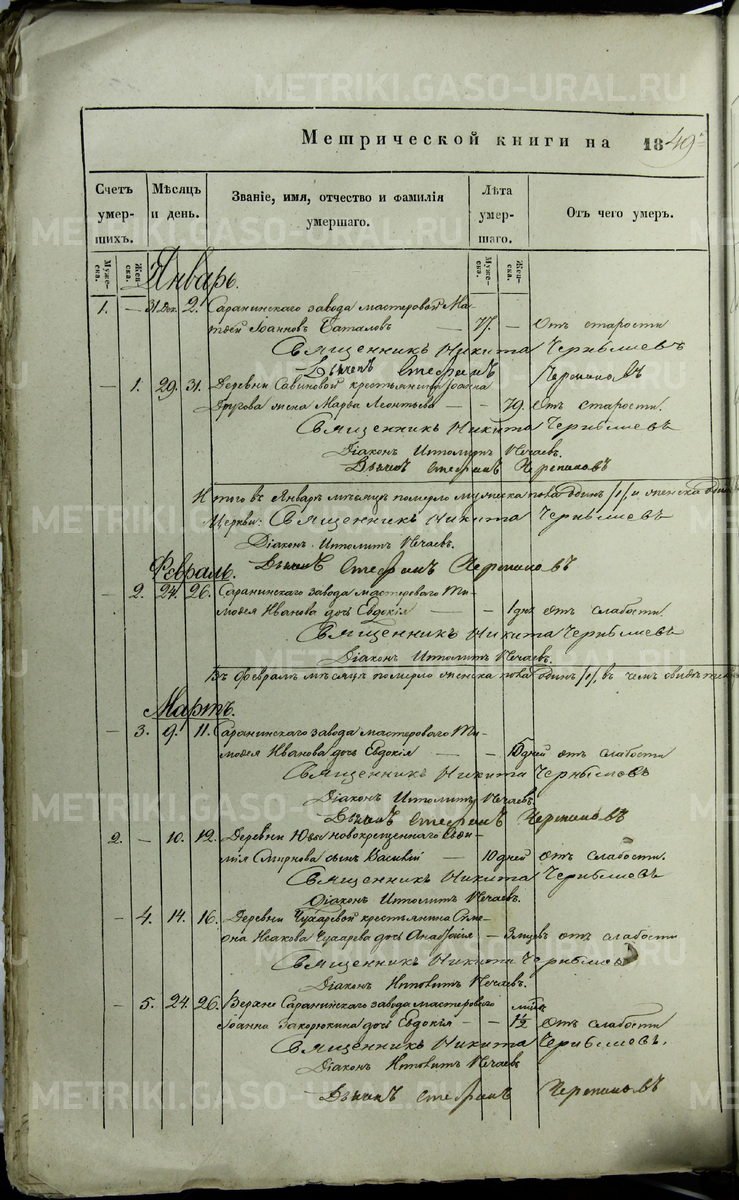 Метрической книги на 1849 г
Счетъ умершихъ.
Мѣсяцъ и день.
Званіе, имя, отчество и фамилія умершаго.
Лѣта умершаго.
Отъ чего умеръ.
Мужеска. Женска. Мужеска. Женска.
Январь.
1. — 31 Дек. 2. Саранинскаго завода мастеровой Ма-
твей Іоанновъ Баталовъ — 77. — Отъ старости
Священникъ Никита Чернышевъ
Дьячекъ Стефанъ Черепановъ
— 1. 29. 31. Деревни Савиновой крестьянина Іоанна
Другова жена Марѳа Леонтьева — — 79. Отъ старости.
Священникъ Никита Чернышевъ
Діаконъ Ипполитъ Нечаевъ.
Дьячекъ Стефанъ Черепановъ
Итого въ Январѣ мѣсяцѣ померло мужеска пола одинъ /1/, и женска
Церкви: Священникъ Никита Чернышевъ
Діаконъ Ипполитъ Нечаевъ.
Дьячекъ Стефанъ Черепановъ
Февраль.
— 2. 24. 26. Саранинскаго завода мастероваго Ти-
моѳея Иванова дочь Евдокія — — 1 дня отъ слабости
Священникъ Никита Чернышевъ
Діаконъ Ипполитъ Нечаевъ.
Въ Февралѣ мѣсяцѣ померло женска пола одинъ /1/, въ чемъ
Мартъ.
— 3. 9. 11. Саранинскаго завода мастероваго Ти-
моѳея Иванова дочь Евдокія — — дней отъ слабости
Священникъ Никита Чернышевъ
Діаконъ Ипполитъ Нечаевъ.
Дьячекъ Стефанъ Черепановъ
2. — 10. 12. Деревни новокрещеннаго
Смирнова сынъ Василій — 10 дней отъ слабости.
Священникъ Никита Чернышевъ
Діаконъ Ипполитъ Нечаевъ.
— 4. 14. 16. Деревни Чухаревой крестьянина Симе-
она Исакова Чухарева дочь — 3 отъ слабости
Священникъ Никита Чернышевъ
Діаконъ Ипполитъ Нечаевъ.
— 5. 24. 26. Верхне Саранинскаго завода мастероваго
Іоанна Закорюкина дочь Евдокія — — 1½ Отъ слабости
Священникъ Никита Чернышевъ.
Діаконъ Ипполитъ Нечаевъ
Дьячекъ Стефанъ Черепановъ
METRIKI.GASO-URAL.RU